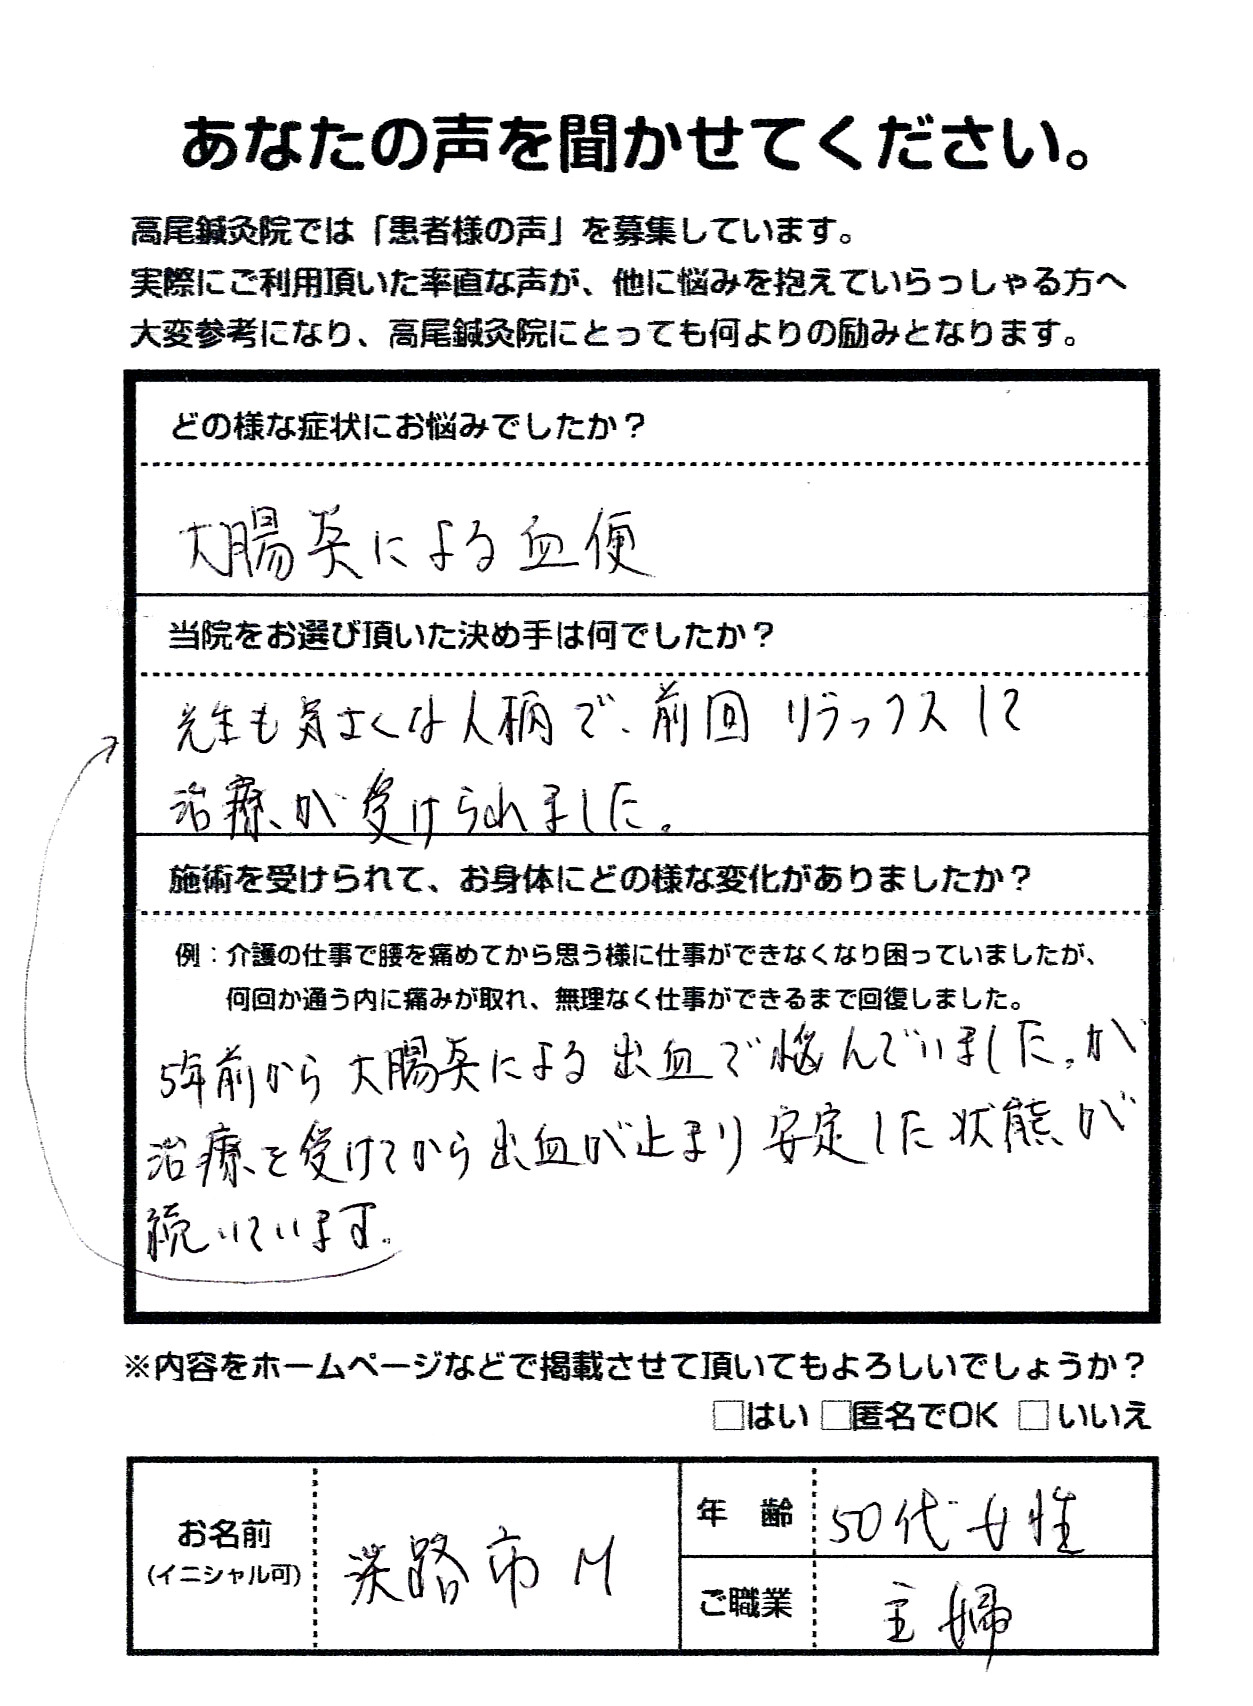 あなたの声を聞かせてください。
高尾鍼灸院では「患者様の声」を募集しています。
実際にご利用頂いた率直な声が、他に悩みを抱えていらっしゃる方へ
大変参考になり、高尾鍼灸院にとっても何よりの励みとなります。
どの様な症状にお悩みでしたか？
大腸炎による血便
当院をお選び頂いた決め手は何でしたか？
先生も気さくな人柄で、前回 リラックスして
治療が受けられました。
施術を受けられて、お身体にどの様な変化がありましたか？
例：介護の仕事で腰を痛めてから思う様に仕事ができなくなり困っていましたが、
何回か通う内に痛みが取れ、無理なく仕事ができるまで回復しました。
5年前から 大腸炎による 出血で悩んでいました。が
治療を受けてから出血が止まり 安定した状態が
続いています。
※内容をホームページなどで掲載させて頂いてもよろしいでしょうか？
□はい □匿名でOK □いいえ
お名前
(イニシャル可)
淡路市 M
年 齢
50代 女性
ご職業
主婦